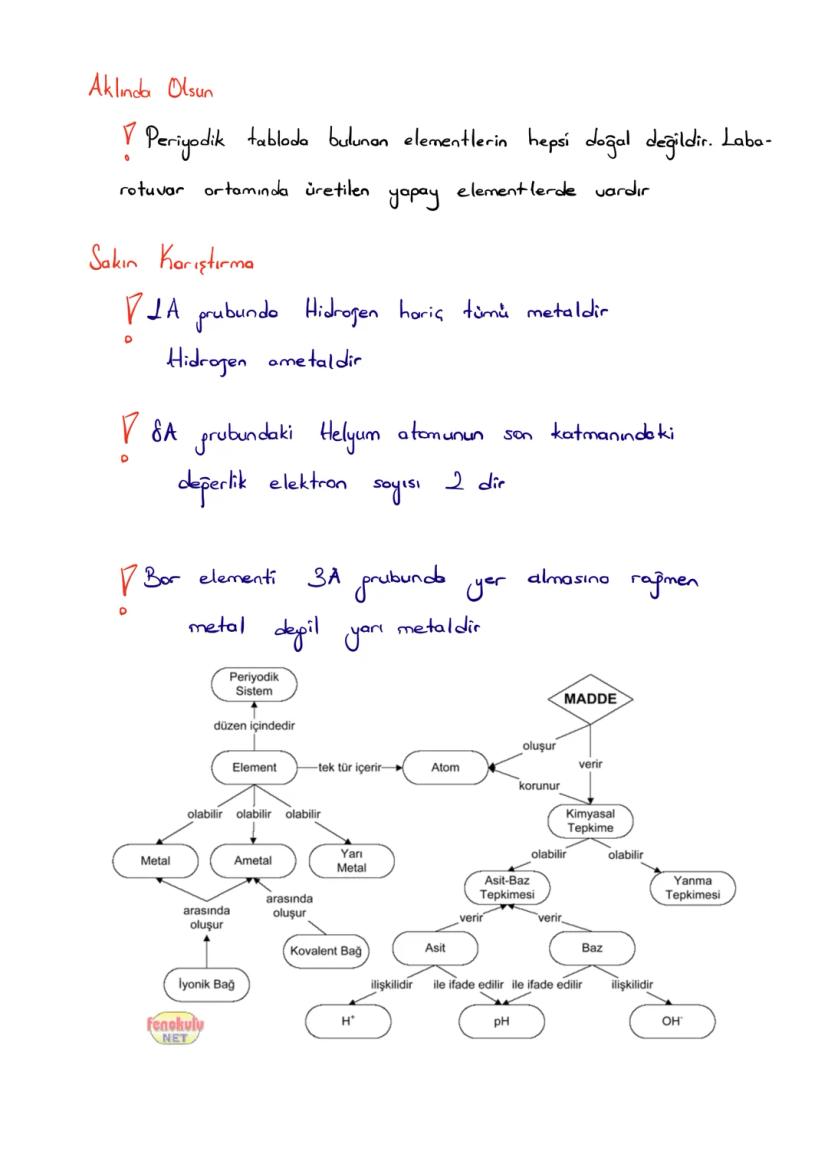 Aklında Olsun
Periyodik tabloda bulunan elementlerin hepsi doğal değildir. Laba-
rotuvar ortamında üretilen yapay elementlerde vardır
Sakın Karıştırma
1A grubunda Hidrojen hariç tümü metaldir
Hidrojen ametaldir
8A grubundaki Helyum atomunun son katmanındaki
değerlik elektron sayısı 2 dir
Bor elementi 3A grubunda yer almasına rağmen
metal değil yarı metaldir
Periyodik
Sistem
MADDE
düzen içindedir
oluşur
Element
tek tür içerir
Atom
verir
korunur
olabilir olabilir olabilir
Kimyasal
Tepkime
Metal
Ametal
Yarı
Metal
olabilir
olabilir
Asit-Baz
Tepkimesi
Yanma
Tepkimesi
arasında
oluşur
arasında
oluşur
verir
verir
Kovalent Bağ
Asit
Baz
İyonik Bağ
ilişkilidir
ile ifade edilir
ile ifade edilir
ilişkilidir
H⁺
pH
OH⁻
fenokulu
NET